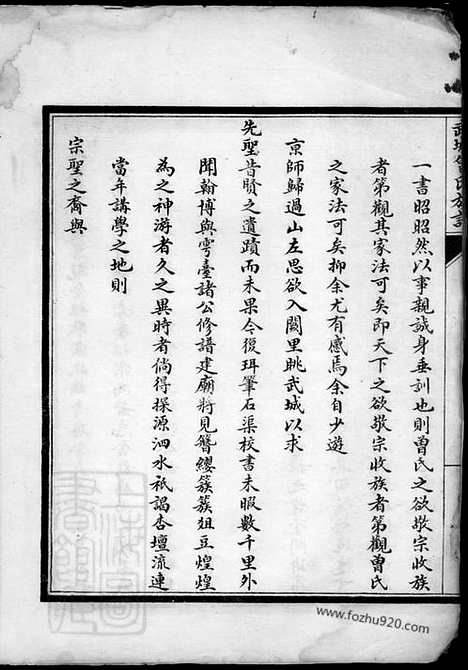 武城曾氏族譜
一書昭昭然以事親誠身垂訓也則曾氏之欲敬宗收族
者第觀其家法可矣即天下之欲敬宗收族者第觀曾氏
之家法可矣抑余尤有感焉余自少遊
京師歸過山左思欲入闕里眺武城以求
先聖昔賢之遺蹟而未果今復珥筆石渠校書未暇數千里外
聞翰博與雩臺諸公修譜建廟將見簪纓簇簇俎豆煌煌
為之神游者久之異時者倘得探源泗水祇謁杏壇流連
當年講學之地則
宗聖之裔與
上海圖書館藏
www.fozhu920.com